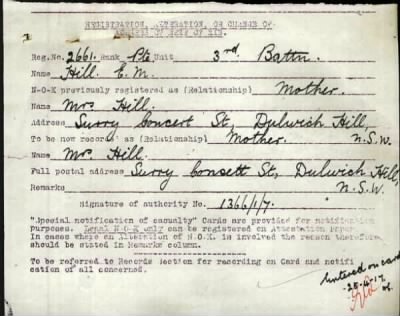 REGISTRATION, ALTERATION, OR CHANGE OF
ADDRESS OF NEXT OF KIN.
Reg. No. 2661. Rank Pte Unit 3rd Battn.
Name Hill. E. M.
N-O-K previously registered as (Relationship) Mother.
Name Mrs Hill.
Address Surry Concert St, Dulwich Hill,
To be now recorded as (Relationship) Mother. N.S.W.
Name Mrs Hill.
Full postal address Surry Consett St, Dulwich Hill,
Remarks N.S.W.
Signature of authority No. 1366/1/7.
"Special notification of casualty" Cards are provided for notification
purposes. Legal N-O-K only can be registered on Attestation Paper
In cases where an Alteration of N.O.K. is involved the reason therefore
should be stated in Remarks column.
To be referred to Records Section for recording on Card and notifi
cation of all concerned.
Entered on card
25-4-17